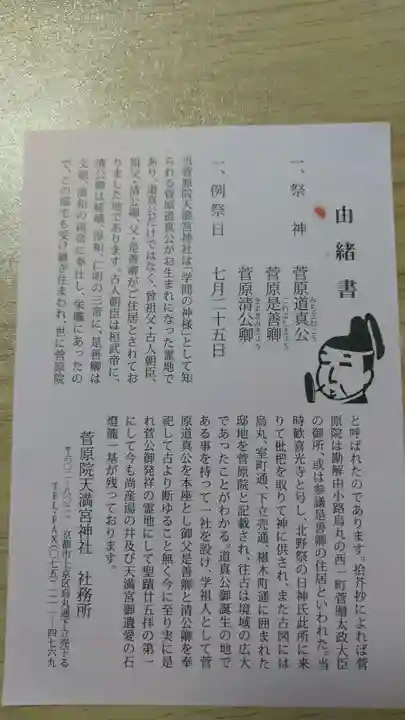 由緒書
一、祭神 菅原道真公
菅原是善卿
菅原清公卿
一、例祭日 七月二十五日
当菅原院天満宮神社は「学問の神様」として知
られる菅原道真公がお生まれになった霊地で
あり、道真公だけではなく、曾祖父・古人朝臣、
祖父・清公卿、父・是善卿がご住居とされてお
りました地であります。古人朝臣は桓武帝に、
清公卿は嵯峨、淳和、仁明の三帝に、是善卿は
文徳、清和の両帝に奉仕し、栄職にあったの
で、この邸でも受け継ぎ住まわれ、世に菅原院
と呼ばれたのであります。拾芥抄によれば菅
原院は勘解由小路烏丸の西一町菅贈太政大臣
の御所、或は参議是善卿の住居といわれた。当
時歓喜光寺と号し、北野祭の日神氏此所に来
りて枇杷を取りて神に供され、また古図には
烏丸、室町通、下立売通、椹木町通に囲まれた
邸地を菅原院と記載され、往古は境域の広大
であったことがわかる。道真公御誕生の地で
ある事を持って一社を設け、学祖人として菅
原道真公を本座とし御父是善卿と清公卿を奉
祀して古より断ゆること無く今に至り実に是
れ菅公御発祥の霊地にして聖蹟廿五拝の第一
にして今も尚産湯の井及び天満宮御遺愛の石
燈籠一基が残っております。
菅原院天満宮神社 社務所
〒六〇二-八〇二二 京都市上京区烏丸通下立売下る
TEL・FAX(〇七五)二一一-四七六九